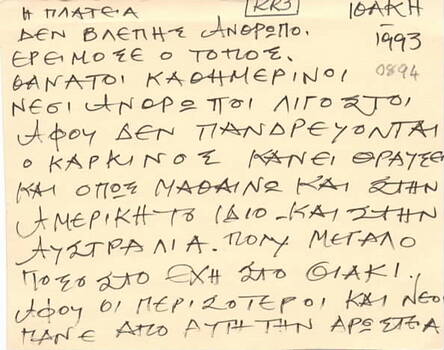 Η ΠΛΑΤΕΙΑ RR3 ΙΘΑΚΗ
ΔΕΝ ΒΛΕΠΗΣ ΑΝΘΡΩΠΟ. 1993
ΕΡΕΙΜΟΣΕ Ο ΤΟΠΟΣ. 0894
ΘΑΝΑΤΟΙ ΚΑΘΗΜΕΡΙΝΟΙ
ΝΕΟΙ ΑΝΘΡΩΠΟΙ ΛΙΓΟΣΤΟΙ
ΑΦΟΥ ΔΕΝ ΠΑΝΔΡΕΥΟΝΤΑΙ
Ο ΚΑΡΚΙΝΟΣ ΚΑΝΕΙ ΘΡΑΥΣΕΙ
ΚΑΙ ΟΠΩΣ ΜΑΘΑΙΝΩ ΚΑΙ ΣΤΗΝ
ΑΜΕΡΙΚΗ ΤΟ ΙΔΙΟ - ΚΑΙ ΣΤΗΝ
ΑΥΣΤΡΑΛΙΑ. ΠΟΛΥ ΜΕΓΑΛΟ
ΠΟΣΟ ΣΤΟ ΕΧΗ ΣΤΟ ΘΙΑΚΙ.
ΑΦΟΥ ΟΙ ΠΕΡΙΣΟΤΕΡΟΙ ΚΑΙ ΝΕΟΙ
ΠΑΝΕ ΑΠΟ ΑΥΤΗ ΤΗΝ ΑΡΩΣΤΕΙΑ